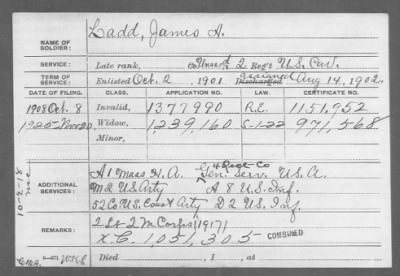 NAME OF SOLDIER: Ladd, James A.
SERVICE: Late rank, Unassd 2 Regt U.S. Cav.
TERM OF SERVICE: Enlisted Oct. 2, 1901 Discharged Aug 14, 1902
DATE OF FILING. CLASS. APPLICATION NO. LAW. CERTIFICATE NO.
1908 Oct. 8 Invalid, 1377990 R.E. 1151,952
1925 Nov 20 Widow, 1239,160 S-1-22 971,568
Minor,
ADDITIONAL SERVICES: A 1 Mass H.A. Gen. Serv. U.S.A.
M.d. U.S. Arty A 8 U.S. Inf.
52 Co U.S. Coast Arty D 2 U.S. Inf.
REMARKS: 2 Lt 2 M Corps (1917)
X.C. 1,051,305 COMBINED
Died , 1 , at
10-2-18